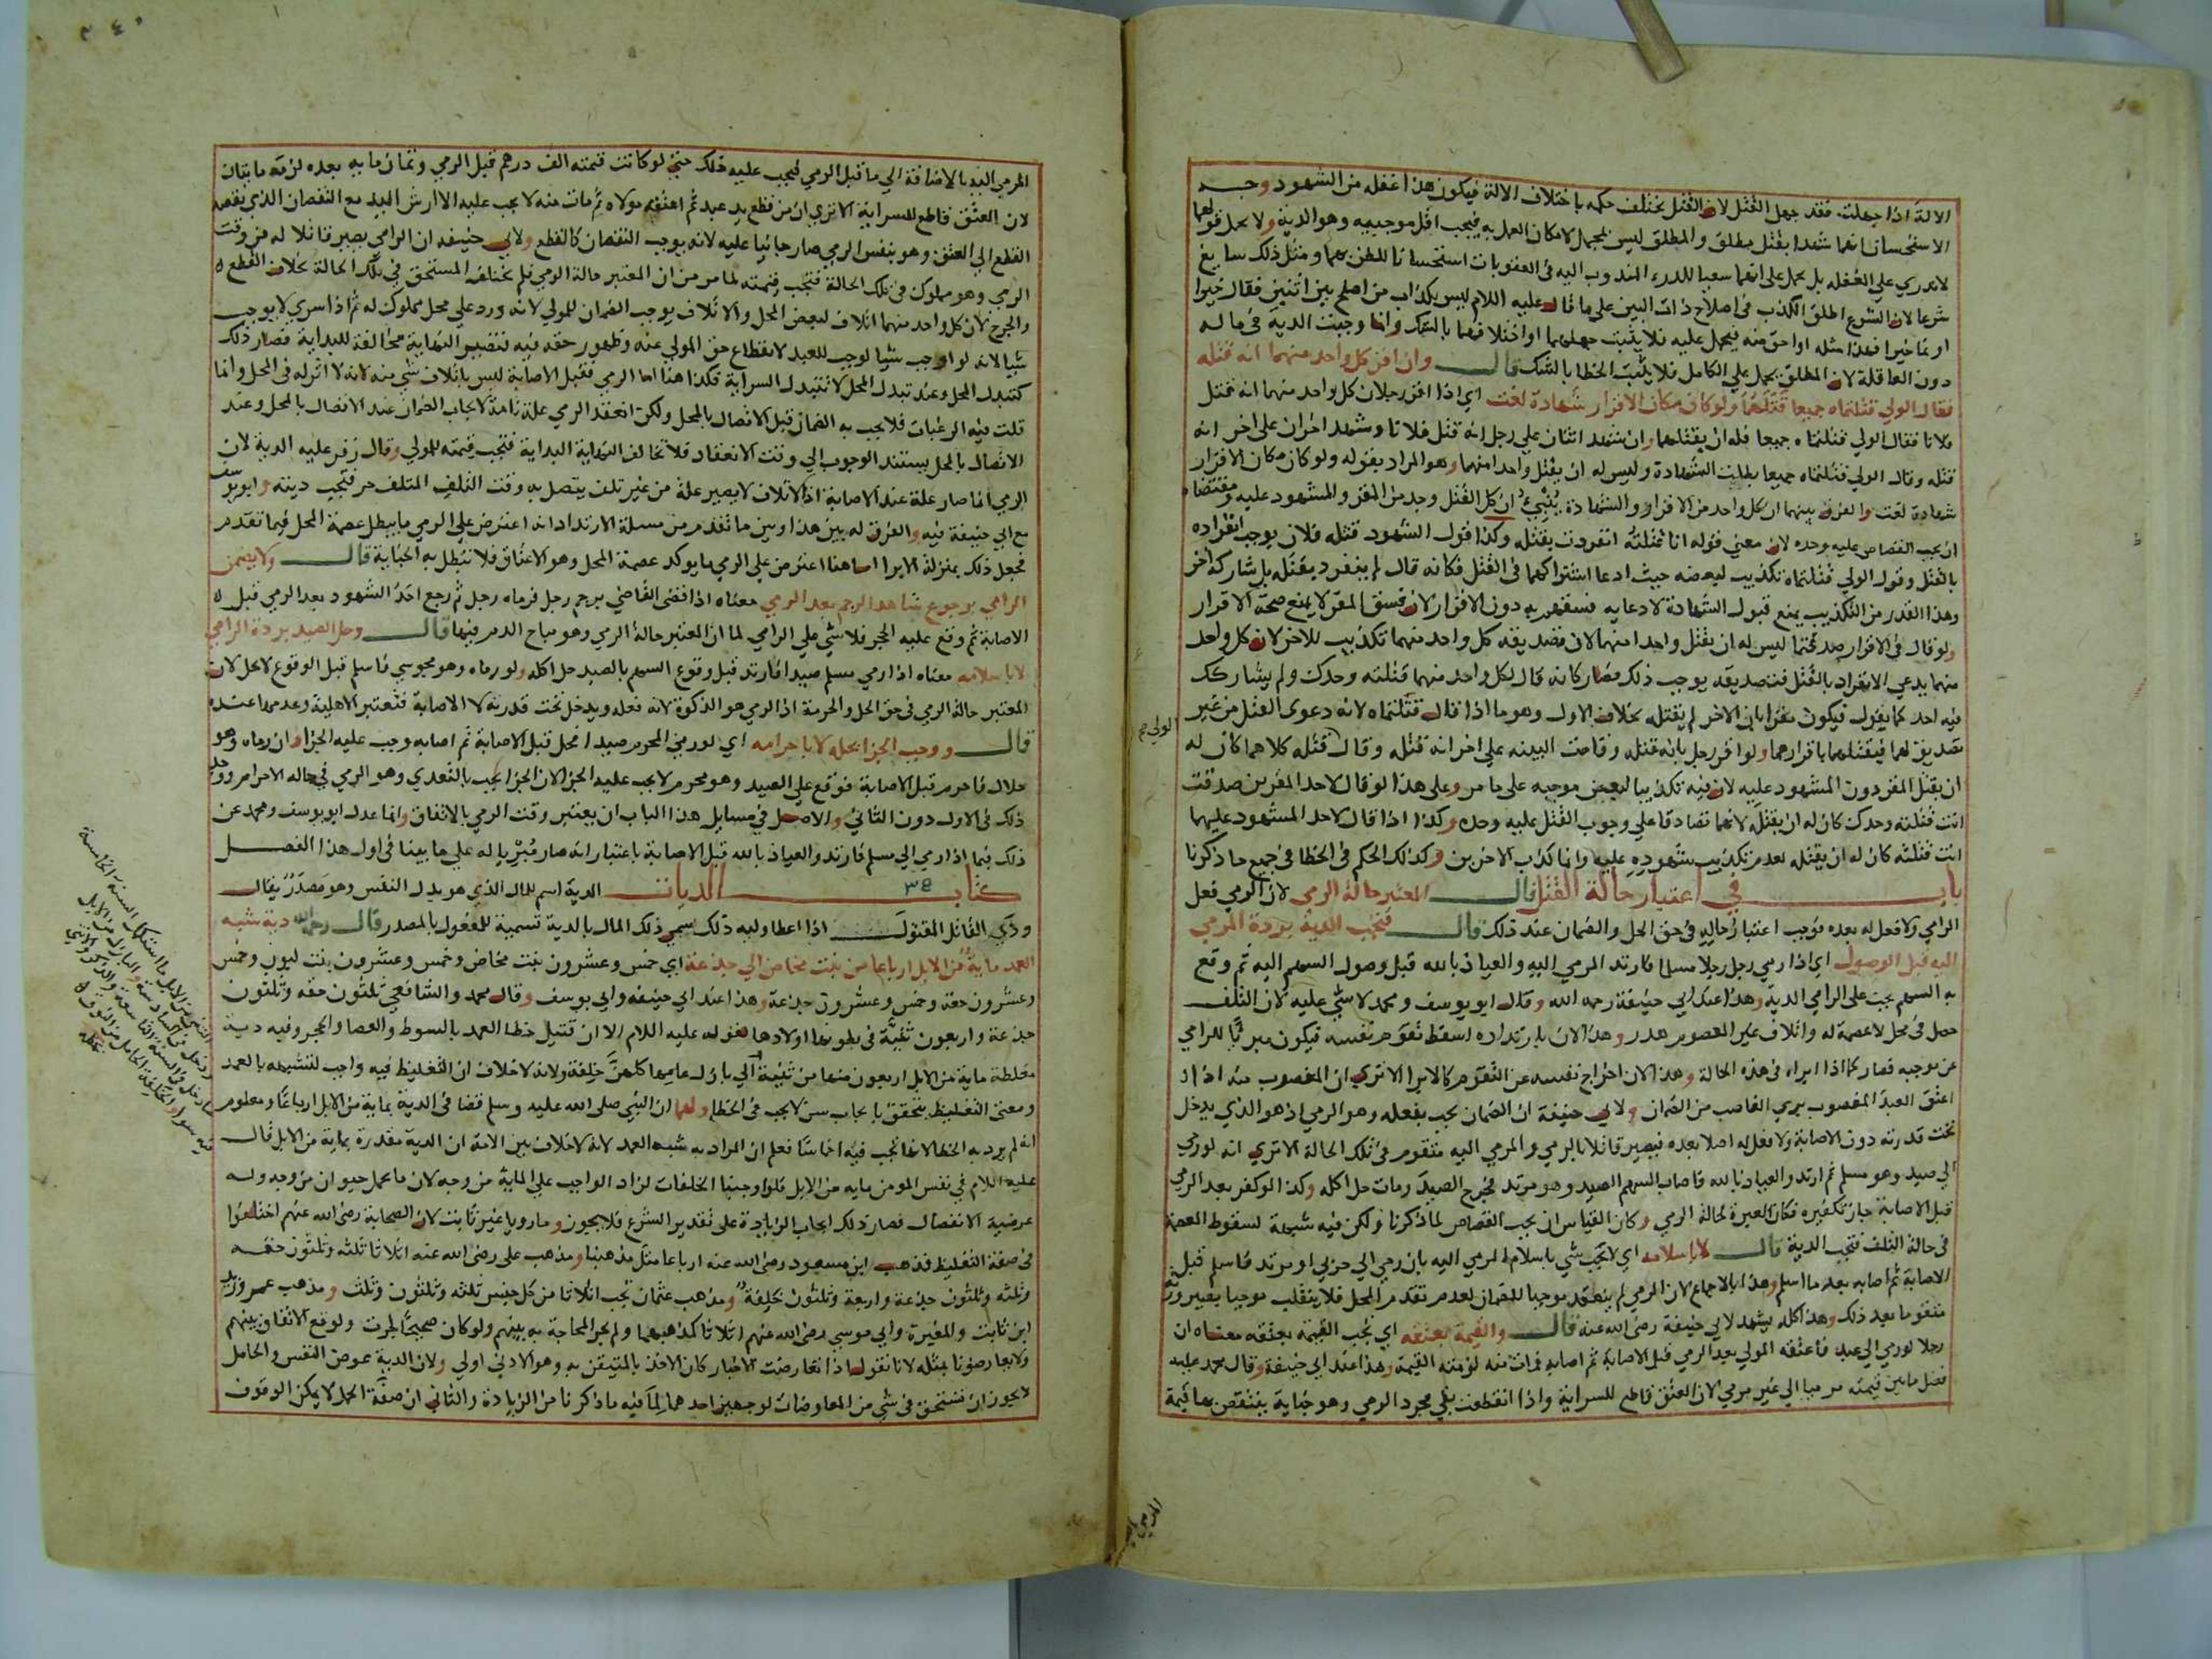 الالة اذا جهلت فقد جهل القتل لان القتل يختلف حكمه باختلاف الالة فيكون هذا غفلة من الشهود وجه
الاستحسان انهما شهدا بقتل مطلق والمطلق ليس بمجمل لامكان العمل به فيجب اقل موجبيه وهو الدية ولا يحمل قولهما
لا ندري على الغفلة بل يحمل على انهما سعيا للدرء المندوب اليه في العقوبات استحسانا للظن بهما ومثل ذلك سايغ
شرعا لان الشرع اطلق الكذب في اصلاح ذات البين على ما قال عليه السلام ليس بكذاب من اصلح بين اثنين فقال خيرا
او نما خيرا فهذا مثله او احق منه فيحمل عليه فلا يثبت جهلهما او اختلافهما بالشك وانما وجبت الدية في ماله
دون العاقلة لان المطلق يحمل على الكامل فلا يثبت الخطا بالشك قال وان اقر كل واحد منهما انه قتله
فقال الولي قتلتماه جميعا قتلهما ولو كان مكان الاقرار شهادة لغت اي اذا اقر رجلان كل واحد منهما انه قتل
فلانا فقال الولي قتلتماه جميعا فله ان يقتلهما وان شهد اثنان على رجل انه قتل فلانا وشهد اخران على اخر انه
قتله وقال الولي قتلتماه جميعا بطلت الشهادة وليس له ان يقتل واحدا منهما وهو المراد بقوله ولو كان مكان الاقرار
شهادة لغت والفرق بينهما ان كل واحد من الاقرار والشهادة ينبئ ان كل القتل وجد من المقر والمشهود عليه ومقتضاه
ان يجب القصاص عليه وحده لان معنى قوله انا قتلته انفردت بقتله وكذا قول الشهود قتله فلان يوجب انفراده
بالقتل وقول الولي قتلتماه تكذيب لبعضه حيث ادعا اشتراكهما في القتل فكانه قال لم ينفرد بقتله بل شاركه اخر
وهذا القدر من التكذيب يمنع قبول الشهادة لادعايه فسقهم به دون الاقرار لان فسق المقر لا يمنع صحة الاقرار
ولو قال في الاقرار صدقتما ليس له ان يقتل واحدا منهما لان تصديقه كل واحد منهما تكذيب للاخر لان كل واحد
منهما يدعي الانفراد بالقتل فتصديقه يوجب ذلك فصار كانه قال لكل واحد منهما قتلته وحدك ولم يشاركك
فيه احد كما يقول فيكون مقرا بان الاخر لم يقتله بخلاف الاول وهو ما اذا قال قتلتماه لانه دعوى القتل من غير
تصديق لهما فيقتلهما باقرارهما ولو اقر رجل بانه قتله وقامت البينه على اخر انه قتله وقال قتله كلاهما كان له
ان يقتل المقر دون المشهود عليه لان فيه تكذيبا لبعض موجبه على ما مر وعلى هذا لو قال لاحد المقرين صدقت
انت قتلته وحدك كان له ان يقتله لانهما تصادقا على وجوب القتل عليه وحده وكذا اذا قال لاحد المشهود عليهما
انت قتلته كان له ان يقتله لعدم تكذيب شهوده عليه وانما كذب الاخرين وكذلك الحكم في الخطا في جميع ما ذكرنا
باب في اعتبار حالة القتل قال المعتبر حالة الرمي لان الرمي فعل
الرامي ولا فعل له بعده فوجب اعتبار حاله في حق الحل والضمان عند ذلك قال فتجب الدية بردة المرمي
اليه قبل الوصول اي اذا رمي رجل رجلا مسلما فارتد المرمي اليه والعياذ بالله قبل وصول السهم اليه ثم وقع
به السهم يجب على الرامي الدية وهذا عند ابي حنيفة رحمه الله وقال ابو يوسف ومحمد لا شي عليه لان التلف
حصل في محل لا عصمة له واتلاف غير المعصوم هدر وهذا لانه بارتداده اسقط تقوم نفسه فيكون مبريا للرامي
عن موجبه فصار كما اذا ابراه في هذه الحالة وهذا لان اخراج نفسه عن التقوم كالابرا الا ترى ان المغصوب منه اذا
اعتق العبد المغصوب يبري الغاصب من الضمان ولابي حنيفة ان الضمان يجب بفعله وهو الرمي اذ هو الذي يدخل
تحت قدرته دون الاصابة ولا فعل له اصلا بعده فيصير قاتلا بالرمي والمرمي اليه متقوم في تلك الحالة الا ترى انه لو رمي
الى صيد وهو مسلم ثم ارتد والعياذ بالله فاصاب السهم الصيد وهو مرتد فجرح الصيد ومات حل اكله وكذا لو كفر بعد الرمي
قبل الاصابة جاز تكفيره فكان العبرة لحالة الرمي وكان القياس ان يجب القصاص لما ذكرنا ولكن فيه شبهة لسقوط العصمة
في حالة التلف فتجب الدية قال لا باسلامه اي لا يجب شي باسلام المرمي اليه بان رمي الى حربي او مرتد فاسلم قبل
الاصابة ثم اصابه بعد ما اسلم وهذا بالاجماع لان الرمي لم ينعقد موجبا للضمان لعدم تقوم المحل فلا ينقلب موجبا بصيرورته
متقوما بعد ذلك وهذا كله يشهد لابي حنيفة رضي الله عنه قال والقيمة بعتقه اي يجب القيمة بعتقه معناه ان
رجلا لو رمي الى عبد فاعتقه المولي بعد الرمي قبل الاصابة ثم اصابه فمات منه لزمته القيمة وهذا عند ابي حنيفة وقال محمد عليه
فضل ما بين قيمته مرميا الى غير مرمي لان العتق قاطع للسراية واذا انقطعت بقي مجرد الرمي وهو جناية ينتقص بها قيمة
الولي
المرمي اليه
المرمي اليه بالاضافة الى ما قبل الرمي فيجب عليه ذلك حتى لو كانت قيمته الف درهم قبل الرمي وثمان ماية بعده لزمه مايتان
لان العتق قاطع للسراية الا ترى ان من قطع يد عبد ثم اعتقه مولاه ثم مات منه لا يجب عليه الا ارش اليد مع النقصان الذي نقصه
القطع الى العتق وهو بنفس الرمي صار جانيا عليه لانه يوجب النقصان كالقطع ولابي حنيفه ان الرامي يصير قاتلا له من وقت
الرمي وهو مملوك في تلك الحالة فتجب قيمته لما مر من ان المعتبر حالة الرمي فلم يختلف المستحق في تلك الحالة بخلاف القطع
والجرح لان كل واحد منهما اتلاف لبعض المحل والاتلاف يوجب الضمان للمولي لانه ورد على محل مملوك له ثم اذا سري لا يوجب
شيا لانه لو اوجب شيا لوجب للعبد لانقطاع حق المولي عنه وظهور حقه فيه فتصير النهاية مخالفة للبداية فصار ذلك
كتبدل المحل وعند تبدل المحل لا تتبدل السراية فكذا هذا اما الرمي فقبل الاصابة ليس باتلاف شي منه لانه لا اثر له في المحل وانما
قلت فيه الرغبات فلا يجب به الضمان قبل الاتصال بالمحل ولكن انعقد الرمي علة تامة لايجاب الضمان عند الاتصال بالمحل وعند
الاتصال بالمحل يستند الوجوب الى وقت الانعقاد فلا تخالف النهاية البداية فتجب قيمته للمولي وقال زفر عليه الدية لان
الرمي انما صار علة عند الاصابة اذ الاتلاف لا يصير علة من غير تلف يتصل به وقت التلف المتلف حر فتجب ديته وابو يوسف
مع ابي حنيفة فيه والفرق له بين هذا وبين ما تقدم من مسلة الارتداد انه اعترض على الرمي ما يبطل عصمة المحل فيما تقدم
فجعل ذلك بمنزلة الابرا اما هنا اعترض على الرمي ما يوكد عصمة المحل وهو الاعتاق فلا تبطل به الجناية قال ولا يضمن
الرامي برجوع شاهد الرجم بعد الرمي معناه اذا قضى القاضي برجم رجل فرماه رجل ثم رجع احد الشهود بعد الرمي قبل
الاصابة ثم وقع عليه الحجر فلا شي على الرامي لما ان المعتبر حالة الرمي وهو مباح الدم فيها قال وحل الصيد بردة الرامي
لا باسلامه معناه اذا رمي مسلم صيدا فارتد قبل وقوع السهم بالصيد حل اكله ولو رماه وهو مجوسي فاسلم قبل الوقوع لا يحل لان
المعتبر حالة الرمي في حق الحل والحرمة اذ الرمي هو الذكوة لانه فعله ويدخل تحت قدرته لا الاصابة فتعتبر الاهلية وعدمها عنده
قال ووجب الجزا بحله لا باحرامه اي لو رمي المحرم صيدا فحل قبل الاصابة ثم اصابه وجب عليه الجزا وان رماه وهو
حلال فاحرم قبل الاصابة فوقع على الصيد وهو محرم لا يجب عليه الجزا لان الجزا يجب بالتعدي وهو الرمي في حاله الاحرام ووجد
ذلك في الاول دون الثاني والاصل في مسايل هذا الباب ان يعتبر وقت الرمي بالاتفاق وانما عدل ابو يوسف ومحمد عن
ذلك فيما اذا رمي الى مسلم فارتد والعياذ بالله قبل الاصابة باعتبار انه صار مبريا له على ما بينا في اول هذا الفصل
كتاب الديات الدية اسم للمال الذي هو بدل النفس وهو مصدر يقال
ودى القاتل المقتول اذا اعطا وليه ذلك سمي ذلك المال بالدية تسمية للمفعول بالمصدر قال رحمه الله دية شبه
العمد ماية من الابل ارباعا من بنت مخاض الى جذعة اي خمس وعشرون بنت مخاض وخمس وعشرون بنت لبون وخمس
وعشرون حقة وخمس وعشرون جذعة وهذا عند ابي حنيفه وابي يوسف وقال محمد والشافعي ثلثون حقه وثلثون
جذعة واربعون ثنية في بطونها اولادها لقوله عليه السلام الا ان قتيل خطا العمد بالسوط والعصا والحجر وفيه دية
مغلظة ماية من الابل اربعون منها من ثنية الى بازل عامها كلهن خلفة ولانه لا خلاف ان التغليظ فيه واجب لتشبهه بالعمد
ومعنى التغليظ يتحقق بايجاب سن لا يجب في الخطا ولهما ان النبي صلى الله عليه وسلم قضا في الدية بماية من الابل ارباعا ومعلوم
انه لم يرد به الخطا لانها تجب فيه اخماسا فعلم ان المراد به شبه العمد لانه لا خلاف بين الامة ان الدية مقدرة بماية من الابل قال
عليه السلام في نفس المومن مايه من الابل فلو اوجبنا الخلفات لزاد الواجب على الماية من وجه لان ما يحمل حيوان من وجه وله
عرضية الانفصال فصار ذلك ايجاب الزيادة على تقدير الشرع فلا يجوز وما روياه غير ثابت لان الصحابة رضي الله عنهم اختلفوا
في صفة التغليظ فذهب ابن مسعود رضي الله عنه ارباعا مثل مذهبنا ومذهب علي رضي الله عنه اثلاثا ثلثه وثلثون حقه
وثلثه وثلثون جذعة واربعة وثلثون خلفة ومذهب عثمان تجب اثلاثا من كل جنس ثلثه وثلثون وثلث ومذهب عمر وزيد
ابن ثابت والمغيرة وابي موسي رضي الله عنهم اثلاثا كمذهبهما ولم تجر المحاجة به بينهم ولو كان صحيحا لجرت ولوقع الاتفاق بينهم
ولا يعارضونا بمثله لانا نقول اذا تعارضت الاخبار كان الاخذ بالمتيقن به وهو الادنى اولى ولان الدية عوض النفس والحامل
لا يجوز ان تستحق في شي من المعاوضات لوجهين احدهما لما فيه ما ذكرنا من الزيادة والثاني ان صفة الحمل لا يمكن الوقوف